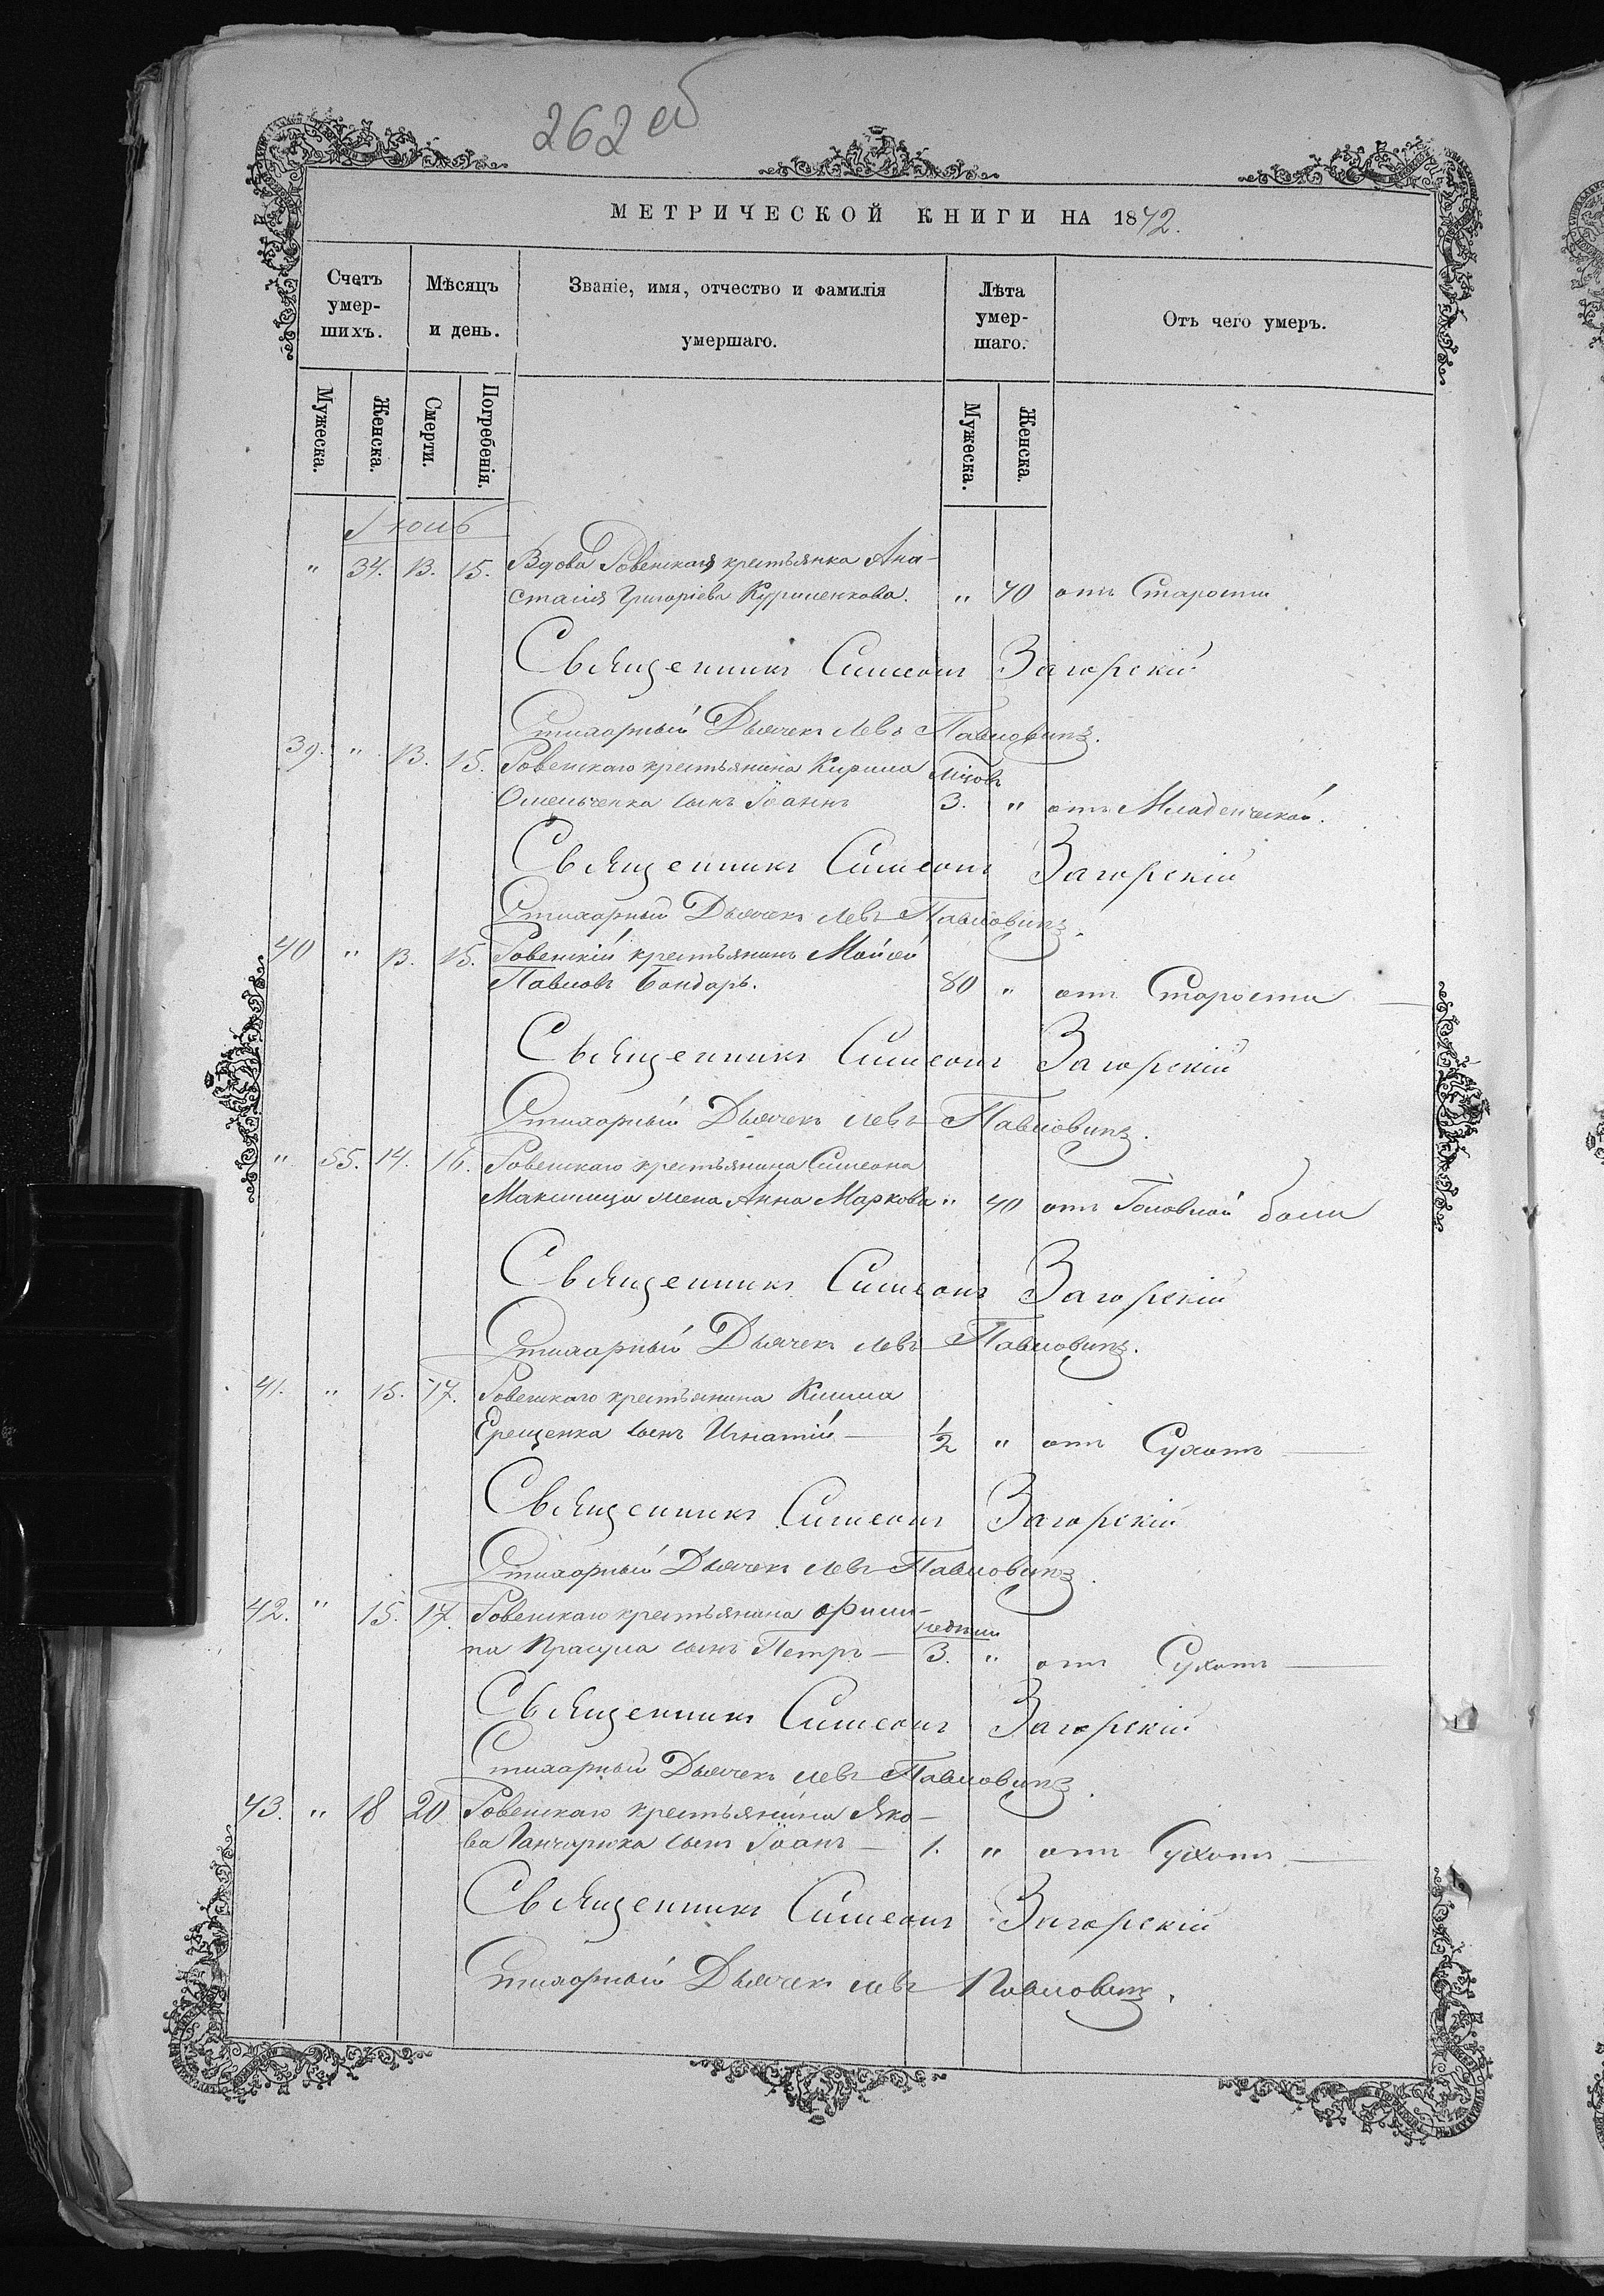 262 об
МЕТРИЧЕСКОЙ КНИГИ НА 1872.
Счетъ умер-шихъ.
Мѣсяцъ и день.
Званіе, имя, отчество и фамилія умершаго.
Лѣта умер-шаго.
Отъ чего умеръ.
Мужеска.
Женска.
Смерти.
Погребенія.
Мужеска.
Женска.
Іюль
" 34. 13. 15. Вдова Ровенская крестьянка Ана-
стасія Григоріева Куриленкова. " 70 отъ Старости
Священникъ Симеонъ Загорскій
Стихарный Дьячекъ Левъ Павловичъ.
39. " 13. 15. Ровенскаго крестьянина Кирила мѣсяцовъ
Омельченка сынъ Іоаннъ 3. " отъ Младенческой.
Священникъ Симеонъ Загорскій
Стихарный Дьячекъ Левъ Павловичъ.
40 " 13. 15. Ровенскій крестьянинъ Мойсей
Павловъ Бондарь. 80 " отъ Старости
Священникъ Симеонъ Загорскій
Стихарный Дьячекъ Левъ Павловичъ.
" 35. 14. 16. Ровенскаго крестьянина Симеона
жена Анна Маркова " 40 отъ Головной боли
Священникъ Симеонъ Загорскій
Стихарный Дьячекъ Левъ Павловичъ.
41. " 15. 17. Ровенскаго крестьянина Клима
Ерещенка сынъ Игнатій — ½ " отъ Сухотъ
Священникъ Симеонъ Загорскій
Стихарный Дьячекъ Левъ Павловичъ.
42. " 15. 17. Ровенскаго крестьянина Фили- недѣли
па сынъ Петръ — 3. " отъ Сухотъ
Священникъ Симеонъ Загорскій
Стихарный Дьячекъ Левъ Павловичъ.
43. " 18 20 Ровенскаго крестьянина Яко-
ва Ганчарюка сынъ Іоанъ — 1. " отъ Сухотъ
Священникъ Симеонъ Загорскій
Стихарный Дьячекъ Левъ Павловичъ.